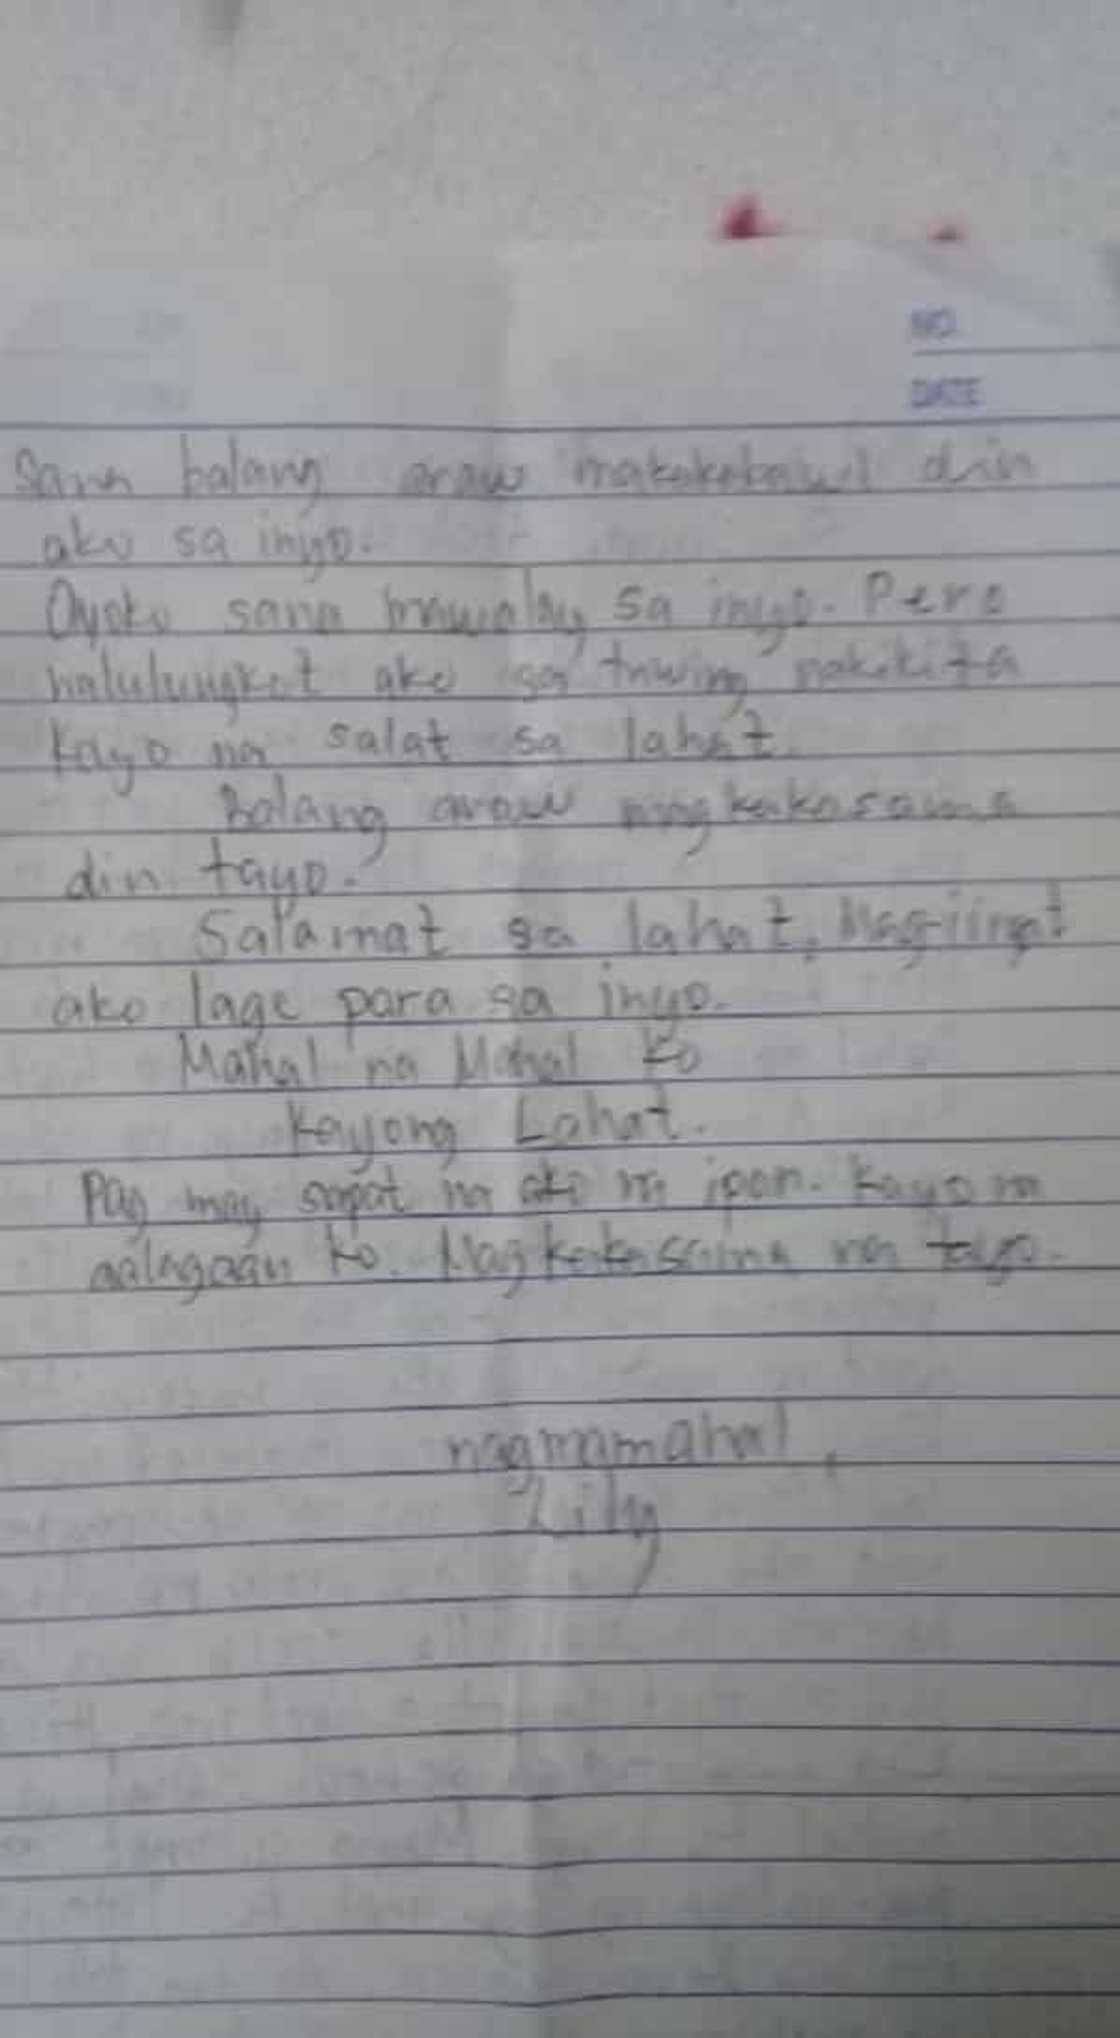 NO
DATE
Sana balang araw makakabawi din
ako sa inyo.
Ayoko sana mawalay sa inyo. Pero
nalulungkot ako sa twing nakikita
kayo na salat sa lahat.
Balang araw magkakasama
din tayo.
Salamat sa lahat, Mag-iingat
ako lage para sa inyo.
Mahal na Mahal ko
kayong Lahat.
Pag may sapat na ako na ipon. Kayo na
aalagaan ko. Magkakasama na tayo.
nagmamahal,
Lily